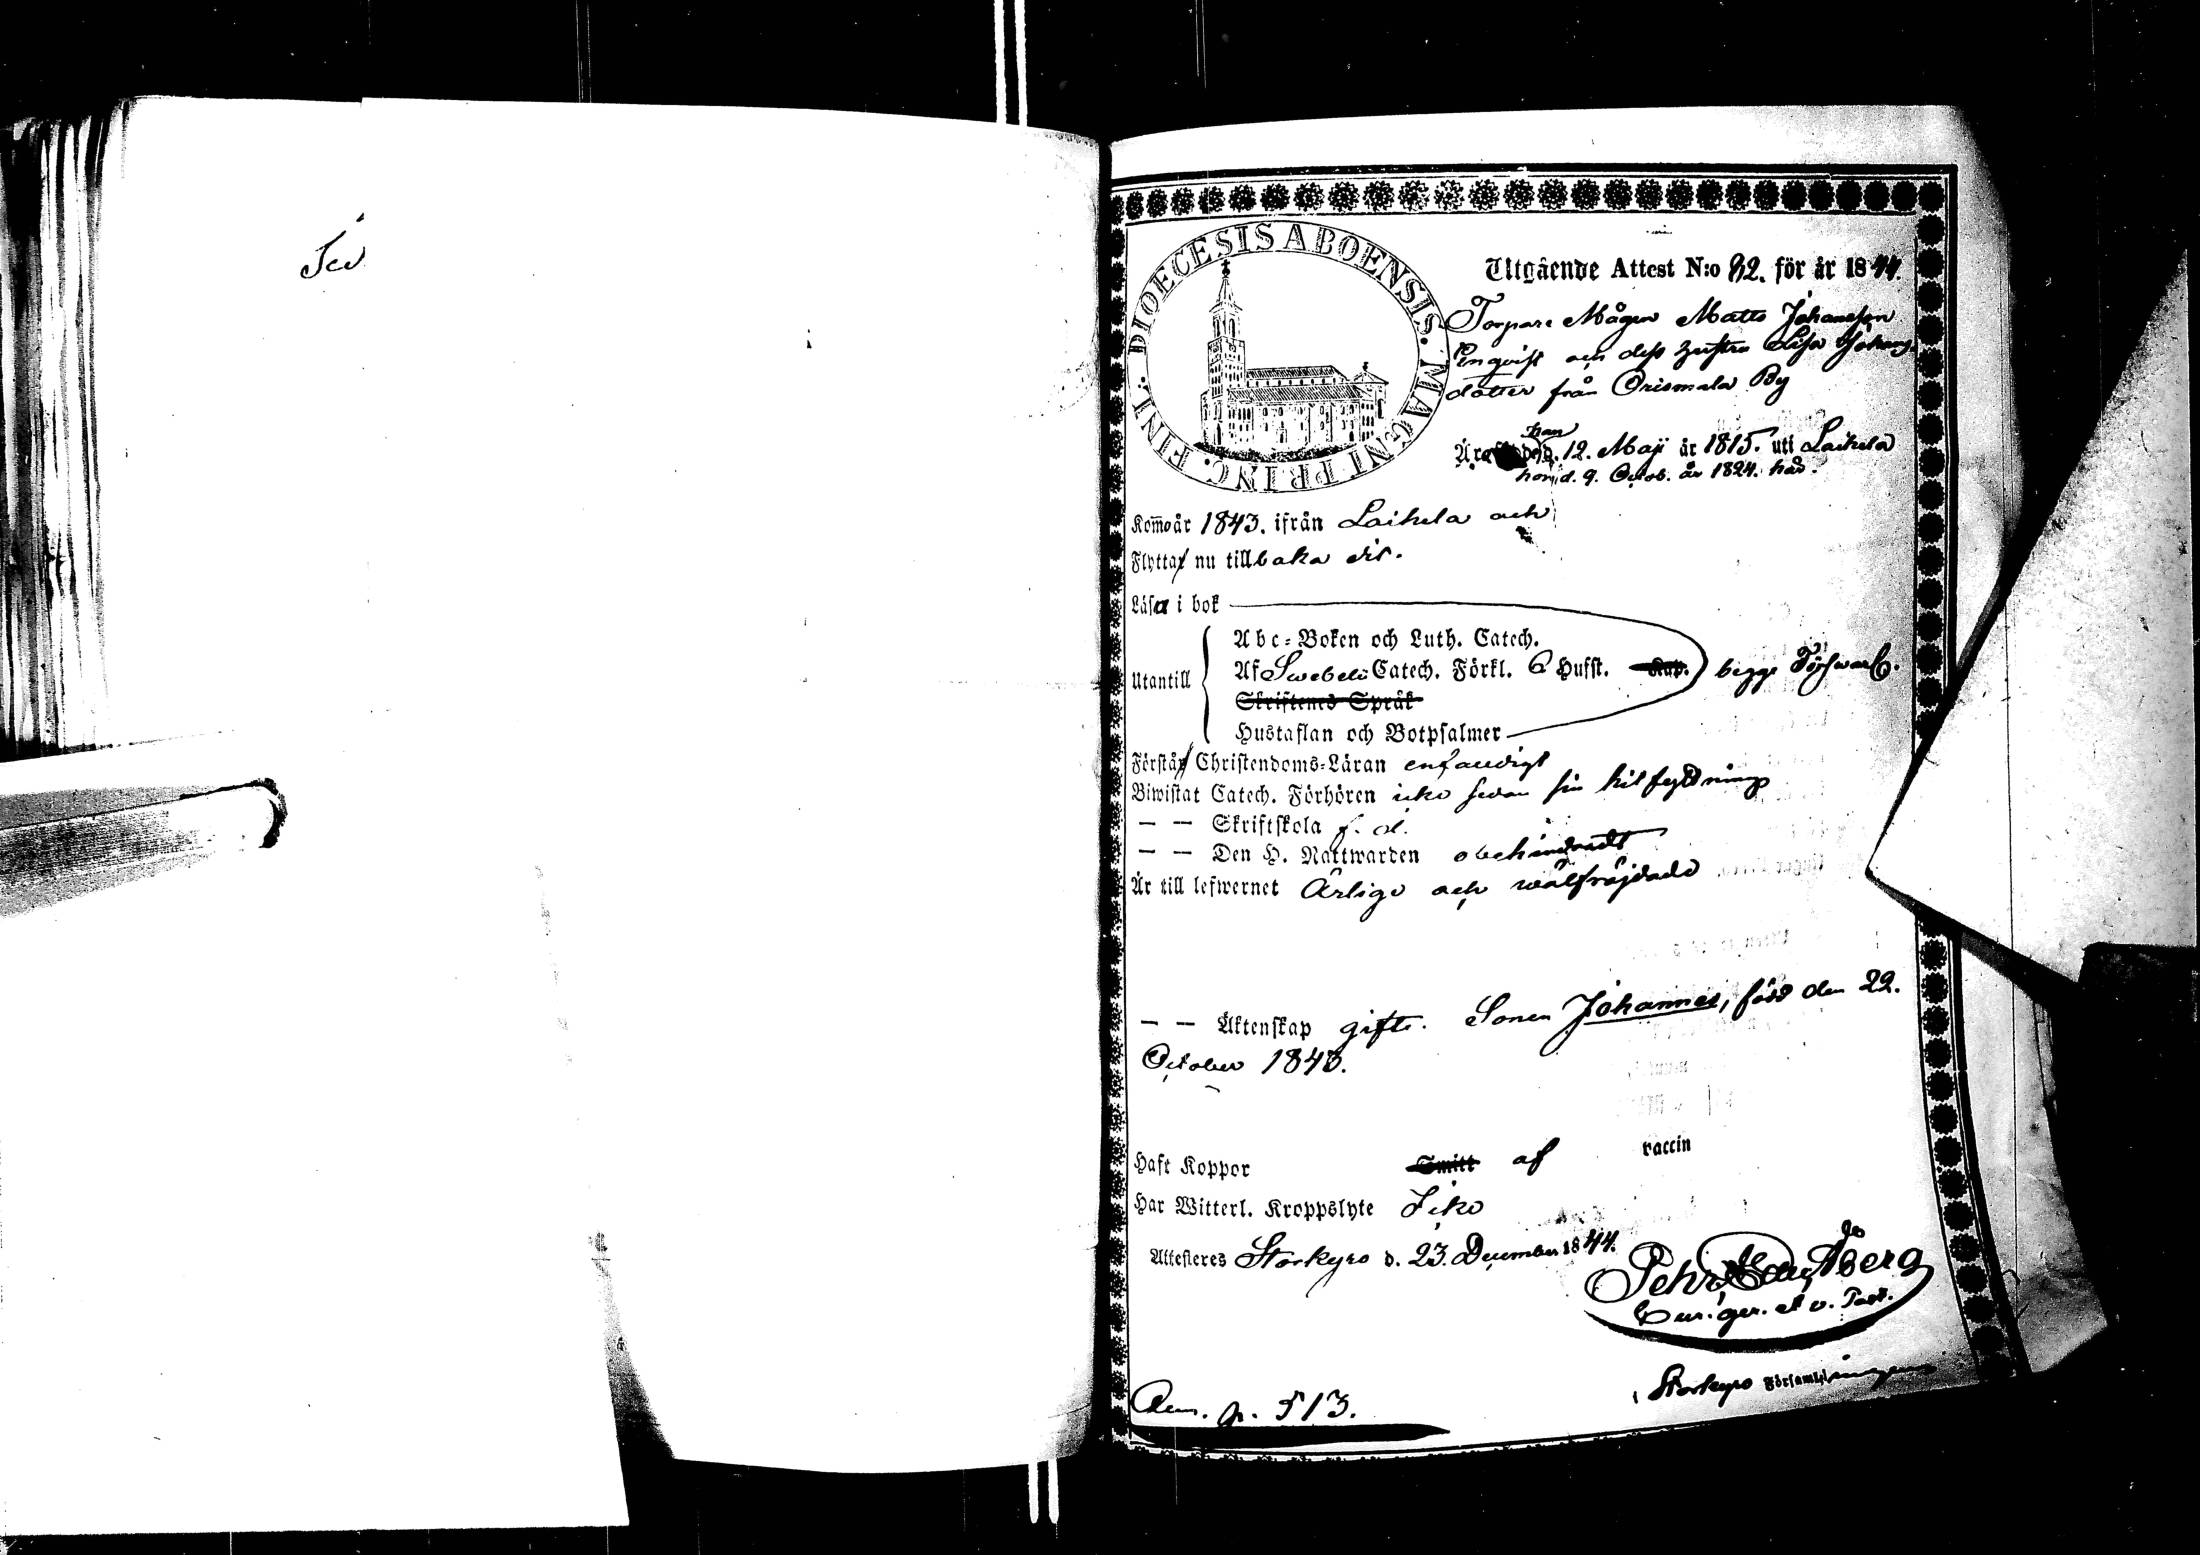 DIOECESIS ABOENSIS. MAGNI PRINC. FINL.
Utgående Attest N:o 82. för år 1844.
Torpare Mågen Matts Johansson
Enqvist och dess hustru Lisa Johans
dotter från Orismala By
han
Äro d. 12. Maji år 1815. uti Laihela
hon d. 9. Octob. år 1824. härs.
Kom̄o år 1843. ifrån Laihela och
Flytta nu tillbaka dit.
Läsa i bok
Abc-Boken och Luth. Catech.
Utantill Af Swebelii Catech. Förkl. 6 Hufst. Kap. begge
Skriftenes Språk
Hustaflan och Botpsalmer
Förstå Christendoms-Läran enfaldigt
Biwistat Catech. Förhören icke sedan sin hitflyttning
— — Skriftskola f. d.
— — Den H. Nattwarden obehindradt
Är till lefwernet Ärlige och wälfräjdade
— — Äktenskap gifte. Sonen Johannes, född den 22.
October 1843.
Haft Koppor Smitt af vaccin
Har Witterl. Kroppslyte Icke
Attesteres Storkyro d. 23. December 1844.
Pehr
Cur. ger. et v. Past.
Storkyro Församlingen
p. 513.